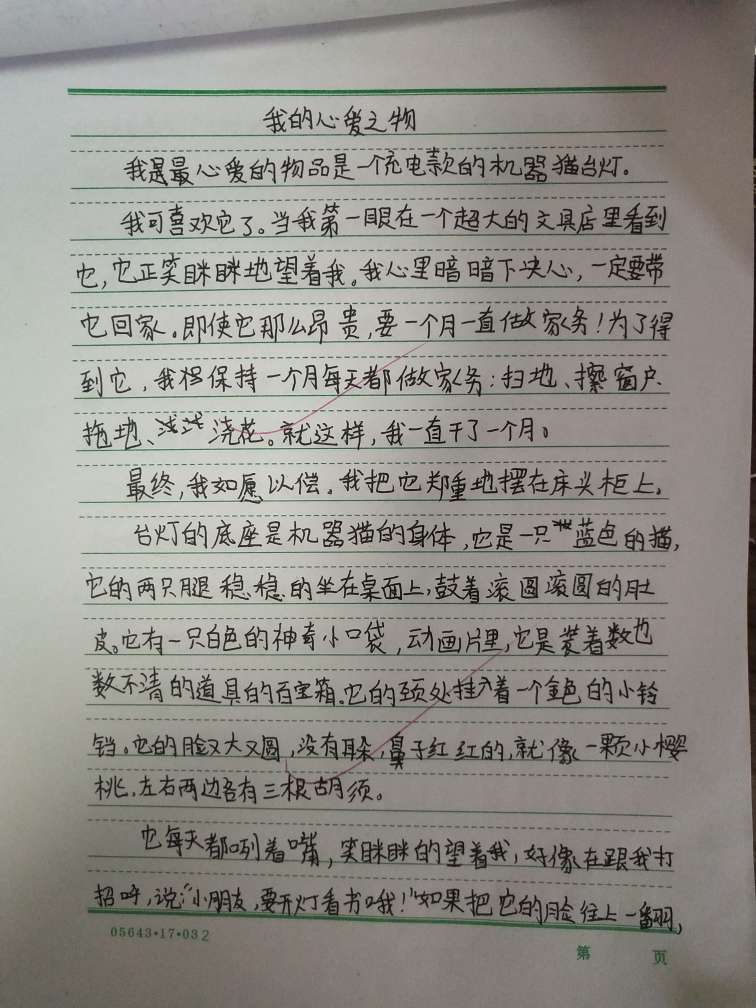 我的心爱之物
我是最心爱的物品是一个充电款的机器猫台灯。
我可喜欢它了。当我第一眼在一个超大的文具店里看到
它,它正笑眯眯地望着我。我心里暗暗下决心,一定要带
它回家。即使它那么昂贵,要一个月一直做家务!为了得
到它,我将保持一个月每天都做家务:扫地、擦窗户
拖地、浇花。就这样,我一直干了一个月。
最终,我如愿以偿。我把它郑重地摆在床头柜上。
台灯的底座是机器猫的身体,它是一只蓝色的猫,
它的两只腿稳稳的坐在桌面上,鼓着滚圆滚圆的肚
皮。它有一只白色的神奇小口袋,动画片里,它是装着数也
数不清的道具的百宝箱。它的颈处挂着一个金色的小铃
铛。它的脸又大又圆,没有耳朵,鼻子红红的,就像一颗小樱
桃,左右两边各有三根胡须。
它每天都咧着嘴,笑眯眯的望着我,好像在跟我打
招呼,说:“小朋友,要开灯看书哦!”如果把它的脸往上一翻,
05643•17•032
第 页